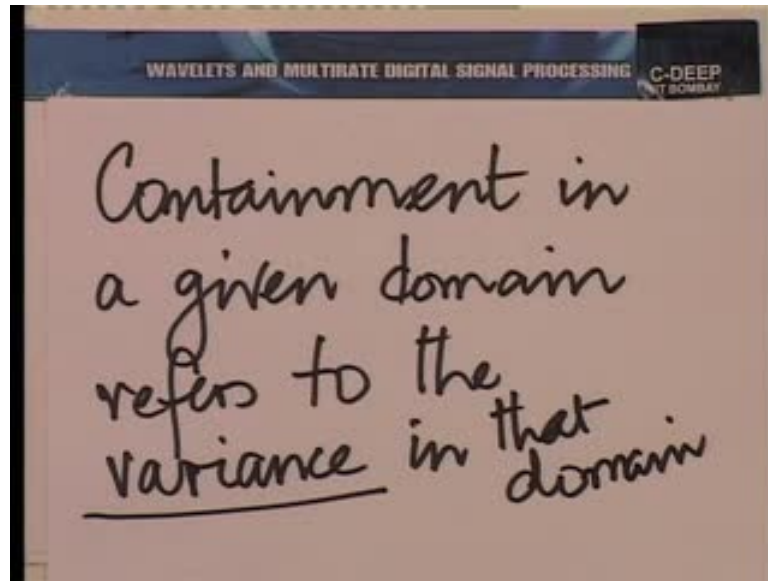 WAVELETS AND MULTIRATE DIGITAL SIGNAL PROCESSING
C-DEEP
IIT BOMBAY
Containment in
a given domain
refers to the
variance in that
domain